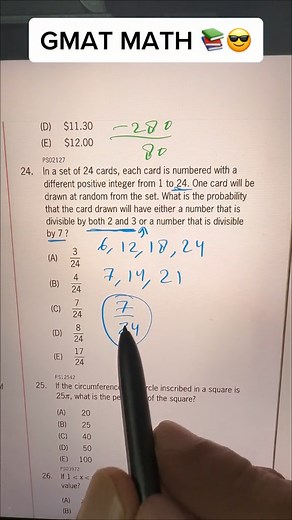 GMAT MATH 📚😎
(D) $11.30
(E) $12.00
-280
80
PS02127
24. In a set of 24 cards, each card is numbered with a
different positive integer from 1 to 24. One card will be
drawn at random from the set. What is the probability
that the card drawn will have either a number that is
divisible by both 2 and 3 or a number that is divisible
by 7 ?
6, 12, 18, 24
7, 14, 21
7
24
(A) 3/24
(B) 4/24
(C) 7/24
(D) 8/24
(E) 17/24
PS12542
25. If the circumference circle inscribed in a square is
25π, what is the of the square?
(A) 20
(B) 25
(C) 40
(D) 50
(E) 100
26. If 1 < x <
value?
(A)
(B)